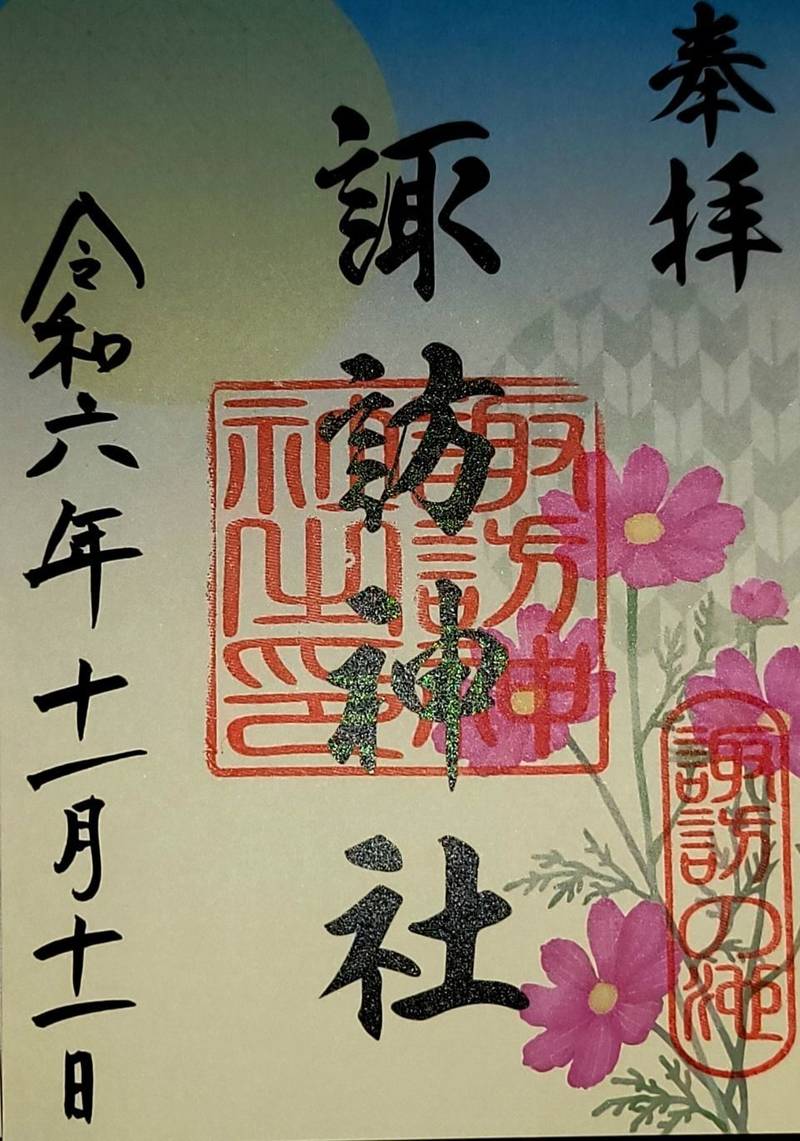 奉拝
諏訪の池
諏訪神社
諏訪神
社之印
令和六年十一月十一日